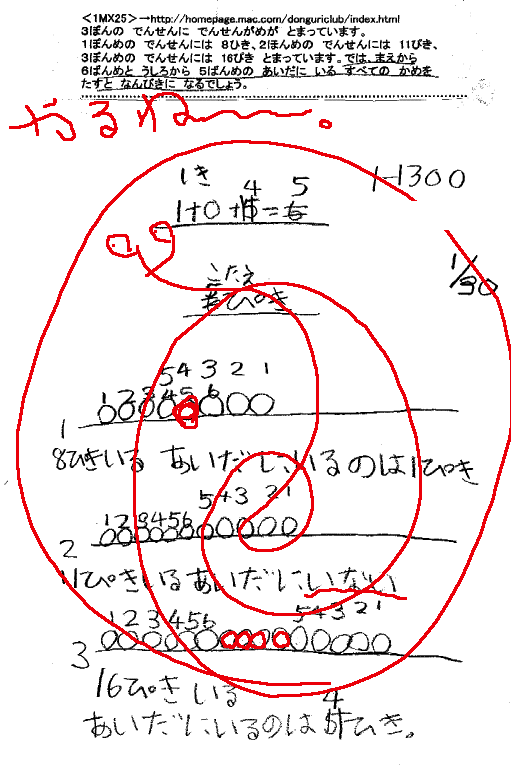 <1MX25>→http://homepage.mac.com/donguriclub/index.html
3ぼんの でんせんに でんせんがめが とまっています。
1ぽんめの でんせんには 8ひき、2ほんめの でんせんには 11ぴき、
3ぼんめの でんせんには 16ぴき とまっています。では、まえから
6ばんめと うしろから 5ばんめの あいだに いる すべての かめを
たすと なんびきに なるでしょう。
やるね〜〜。
1き 4 5
1-1300
1+0+
1/30
こたえ
ぴき
5 4 3 2 1
1 2 3 4 5 6
1
8ぴきいる あいだにいるのは1ぴき
5 4 3 2 1
1 2 3 4 5 6
2
11ぴきいるあいだにいない
1 2 3 4 5 6 5 4 3 2 1
3
16ぴきいる
4
あいだにいるのは ひき。